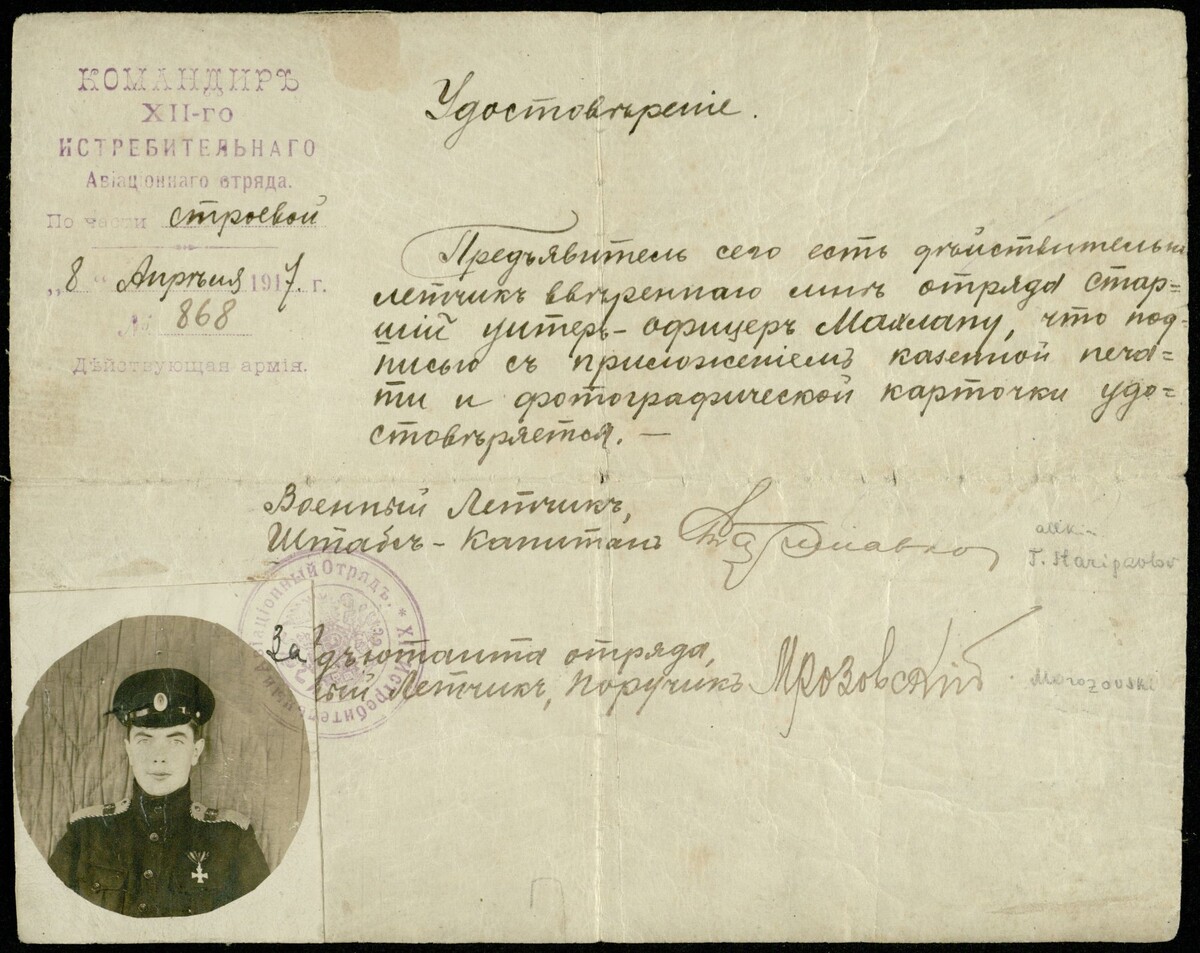 КОМАНДИРЪ
XII-го
ИСТРЕБИТЕЛЬНАГО
Авіаціоннаго отряда.
По части строевой
„8“ Апрѣля 1917 г.
№ 868
Дѣйствующая армія.
Удостовѣреніе.
Предъявитель сего есть дѣйствительно
летчикъ ввѣреннаго мнѣ отряда стар=
шій унтеръ-офицеръ Махлапу, что под=
писью съ приложеніемъ казенной печа=
ти и фотографической карточки удо=
стовѣряется. —
Военный Летчикъ,
Штабсъ-Капитанъ
allk-
T. Haripavlov
За дъютанта отряда,
ный Летчикъ, Поручикъ Мрозовскій
Morozovski
Авіаціонный Отрядъ. * XII Истребительный